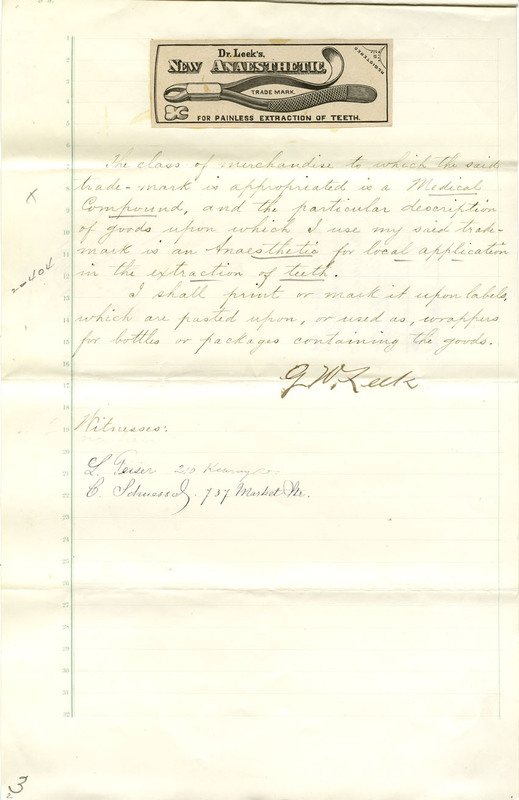 Dr. Leek's.
New Anaesthetic.
REGISTERED
TRADE MARK.
FOR PAINLESS EXTRACTION OF TEETH.
The class of merchandise to which the said
trade-mark is appropriated is a Medical
Compound, and the particular description
of goods upon which I use my said trade-
mark is an Anaesthetic for local application
in the extraction of teeth.
I shall print or mark it upon labels,
which are pasted upon, or used as, wrappers
for bottles or packages containing the goods.
G. W. Leek
Witnesses:
L. 210 Kearny
C. 737 Market Str.
x
2-404
3
1
2
3
4
5
6
7
8
9
10
11
12
13
14
15
16
17
18
19
20
21
22
23
24
25
26
27
28
29
30
31
32